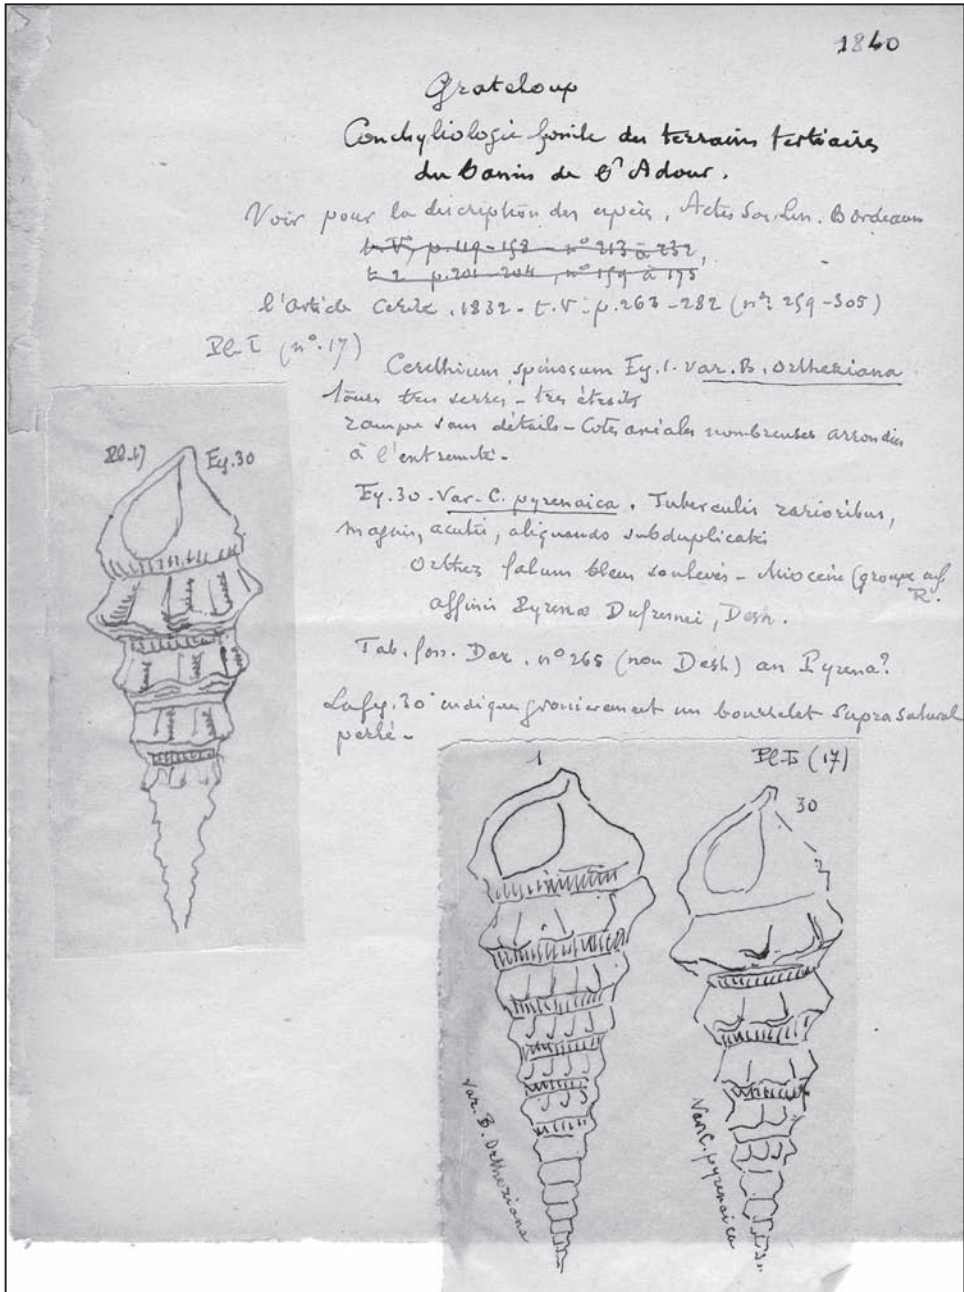 1840
Grateloup
Conchyliologie fossile des terrains tertiaires
du bassin de l'Adour.
Voir pour la description des espèces, Actes Soc. Lin. Bordeaux
t. V, p. 119-158 - n° 213 à 232,
t. 2 p. 201-204, n° 159 à 175
l'article Cerite. 1832 - t. V: p. 263-282 (n° 259-305)
Pl. I (n°. 17)
Cerithium spinosum Fig. 1. Var. B. Ortheziana
tours très serrés - très étroits
rampe sans détails - Cotes axiales nombreuses arrondies
à l'extremité -
Fig. 30 - Var. C. pyrenaica. Tuberculis rarioribus,
magnis, acutis, aliquando subduplicatis
Orthez falun bleu soulevés - Miocène (groupe
R.
affinis Pyrena Dufresnei, Desh.
Tab. foss. Dax. n° 265 (non Desh) an Pyrena?
La fig. 30 indique grossièrement un bourrelet suprasutural
perlé -
Pl. 17 Fig. 30
1 Pl. I (17)
30
Var. B. Ortheziana
Var. C. pyrenaica